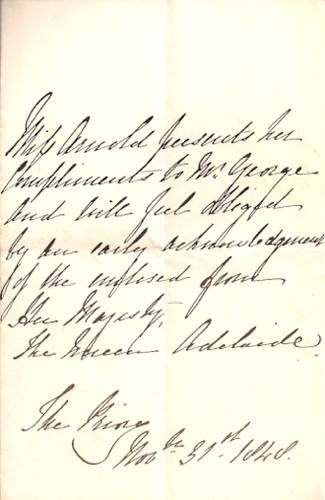 Miss Arnold presents her
Compliments to Mr. George
and will feel obliged
by an early acknowledgment
of the enclosed from
Her Majesty,
The Queen Adelaide.
The Priory
Novbr 31st. 1848.